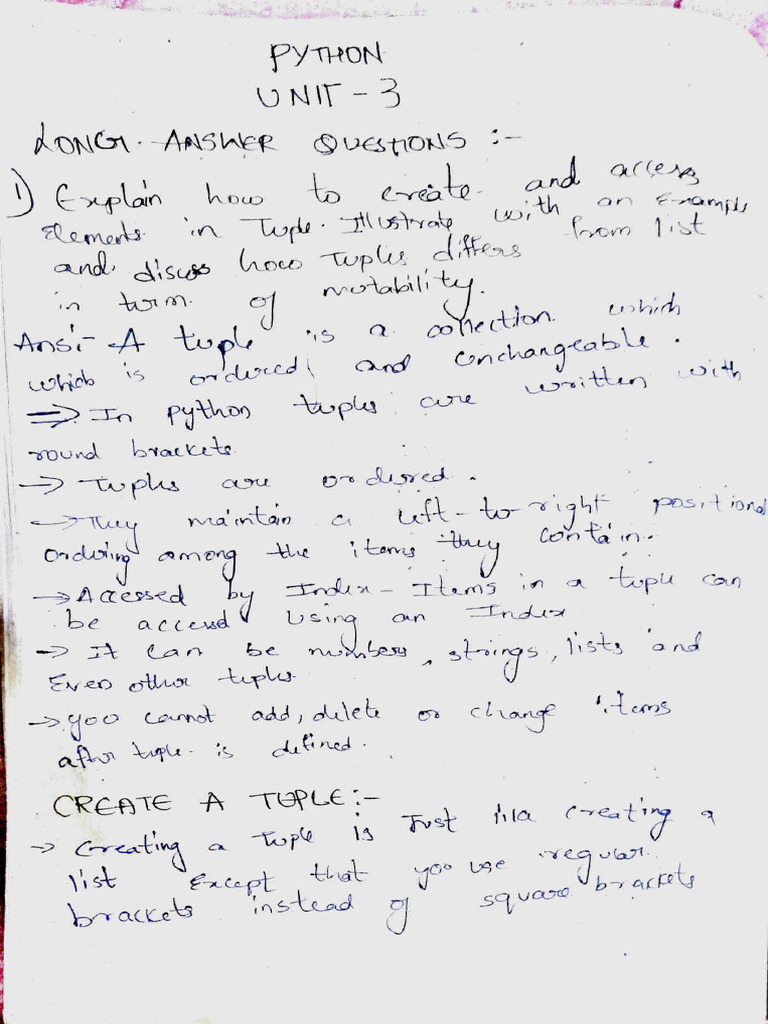 PYTHON
UNIT-3
LONG ANSWER QUESTIONS :-
1) Explain how to create and access
Elements in Tuple. Illustrate with an Example
and discuss how Tuples differs from list
in term of mutability.
Ans:- A tuple is a collection which
which is ordered and unchangeable.
=> In python tuples are written with
round brackets
-> Tuples are ordered.
-> They maintain a left-to-right positional
Ordering among the items they contain.
-> Accessed by Index - Items in a tuple can
be accessed using an Index
-> It can be numbers, strings, lists and
Even other tuples.
-> you cannot add, delete or change items
after tuple is defined.
CREATE A TUPLE:-
-> Creating a Tuple is Just creating a
list Except that you use regular
brackets instead of square brackets